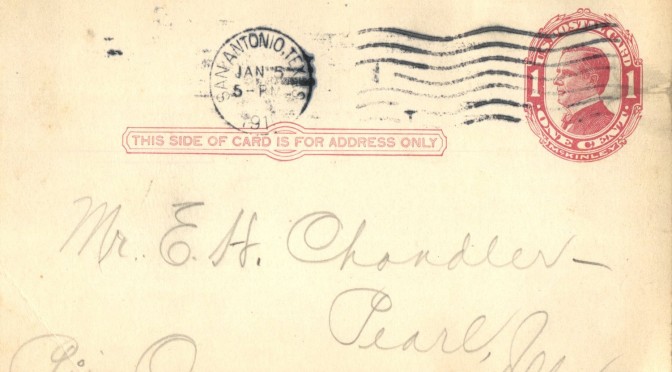 SAN ANTONIO, TEXAS
JAN 5
5-PM
191
U.S. POSTAL CARD
1 1
ONE CENT.
McKINLEY
THIS SIDE OF CARD IS FOR ADDRESS ONLY
Mr. E. H. Chandler
Pearl,